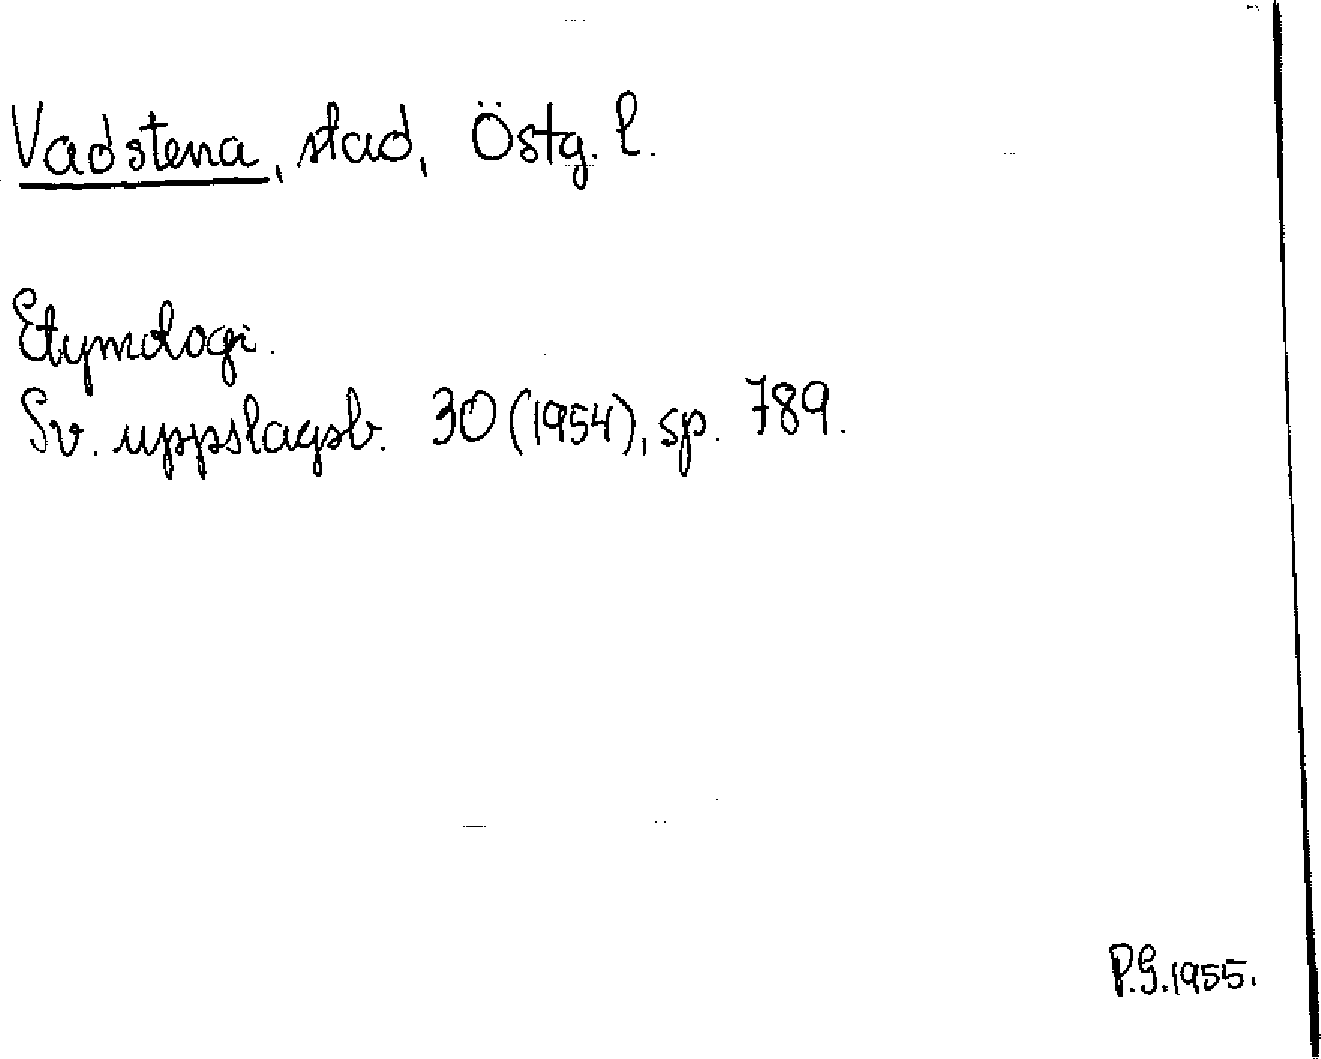 Vadstena, stad, Östg. l.
Etymologi.
Sv. uppslagsb. 30 (1954), sp. 789.
P.G.1955.